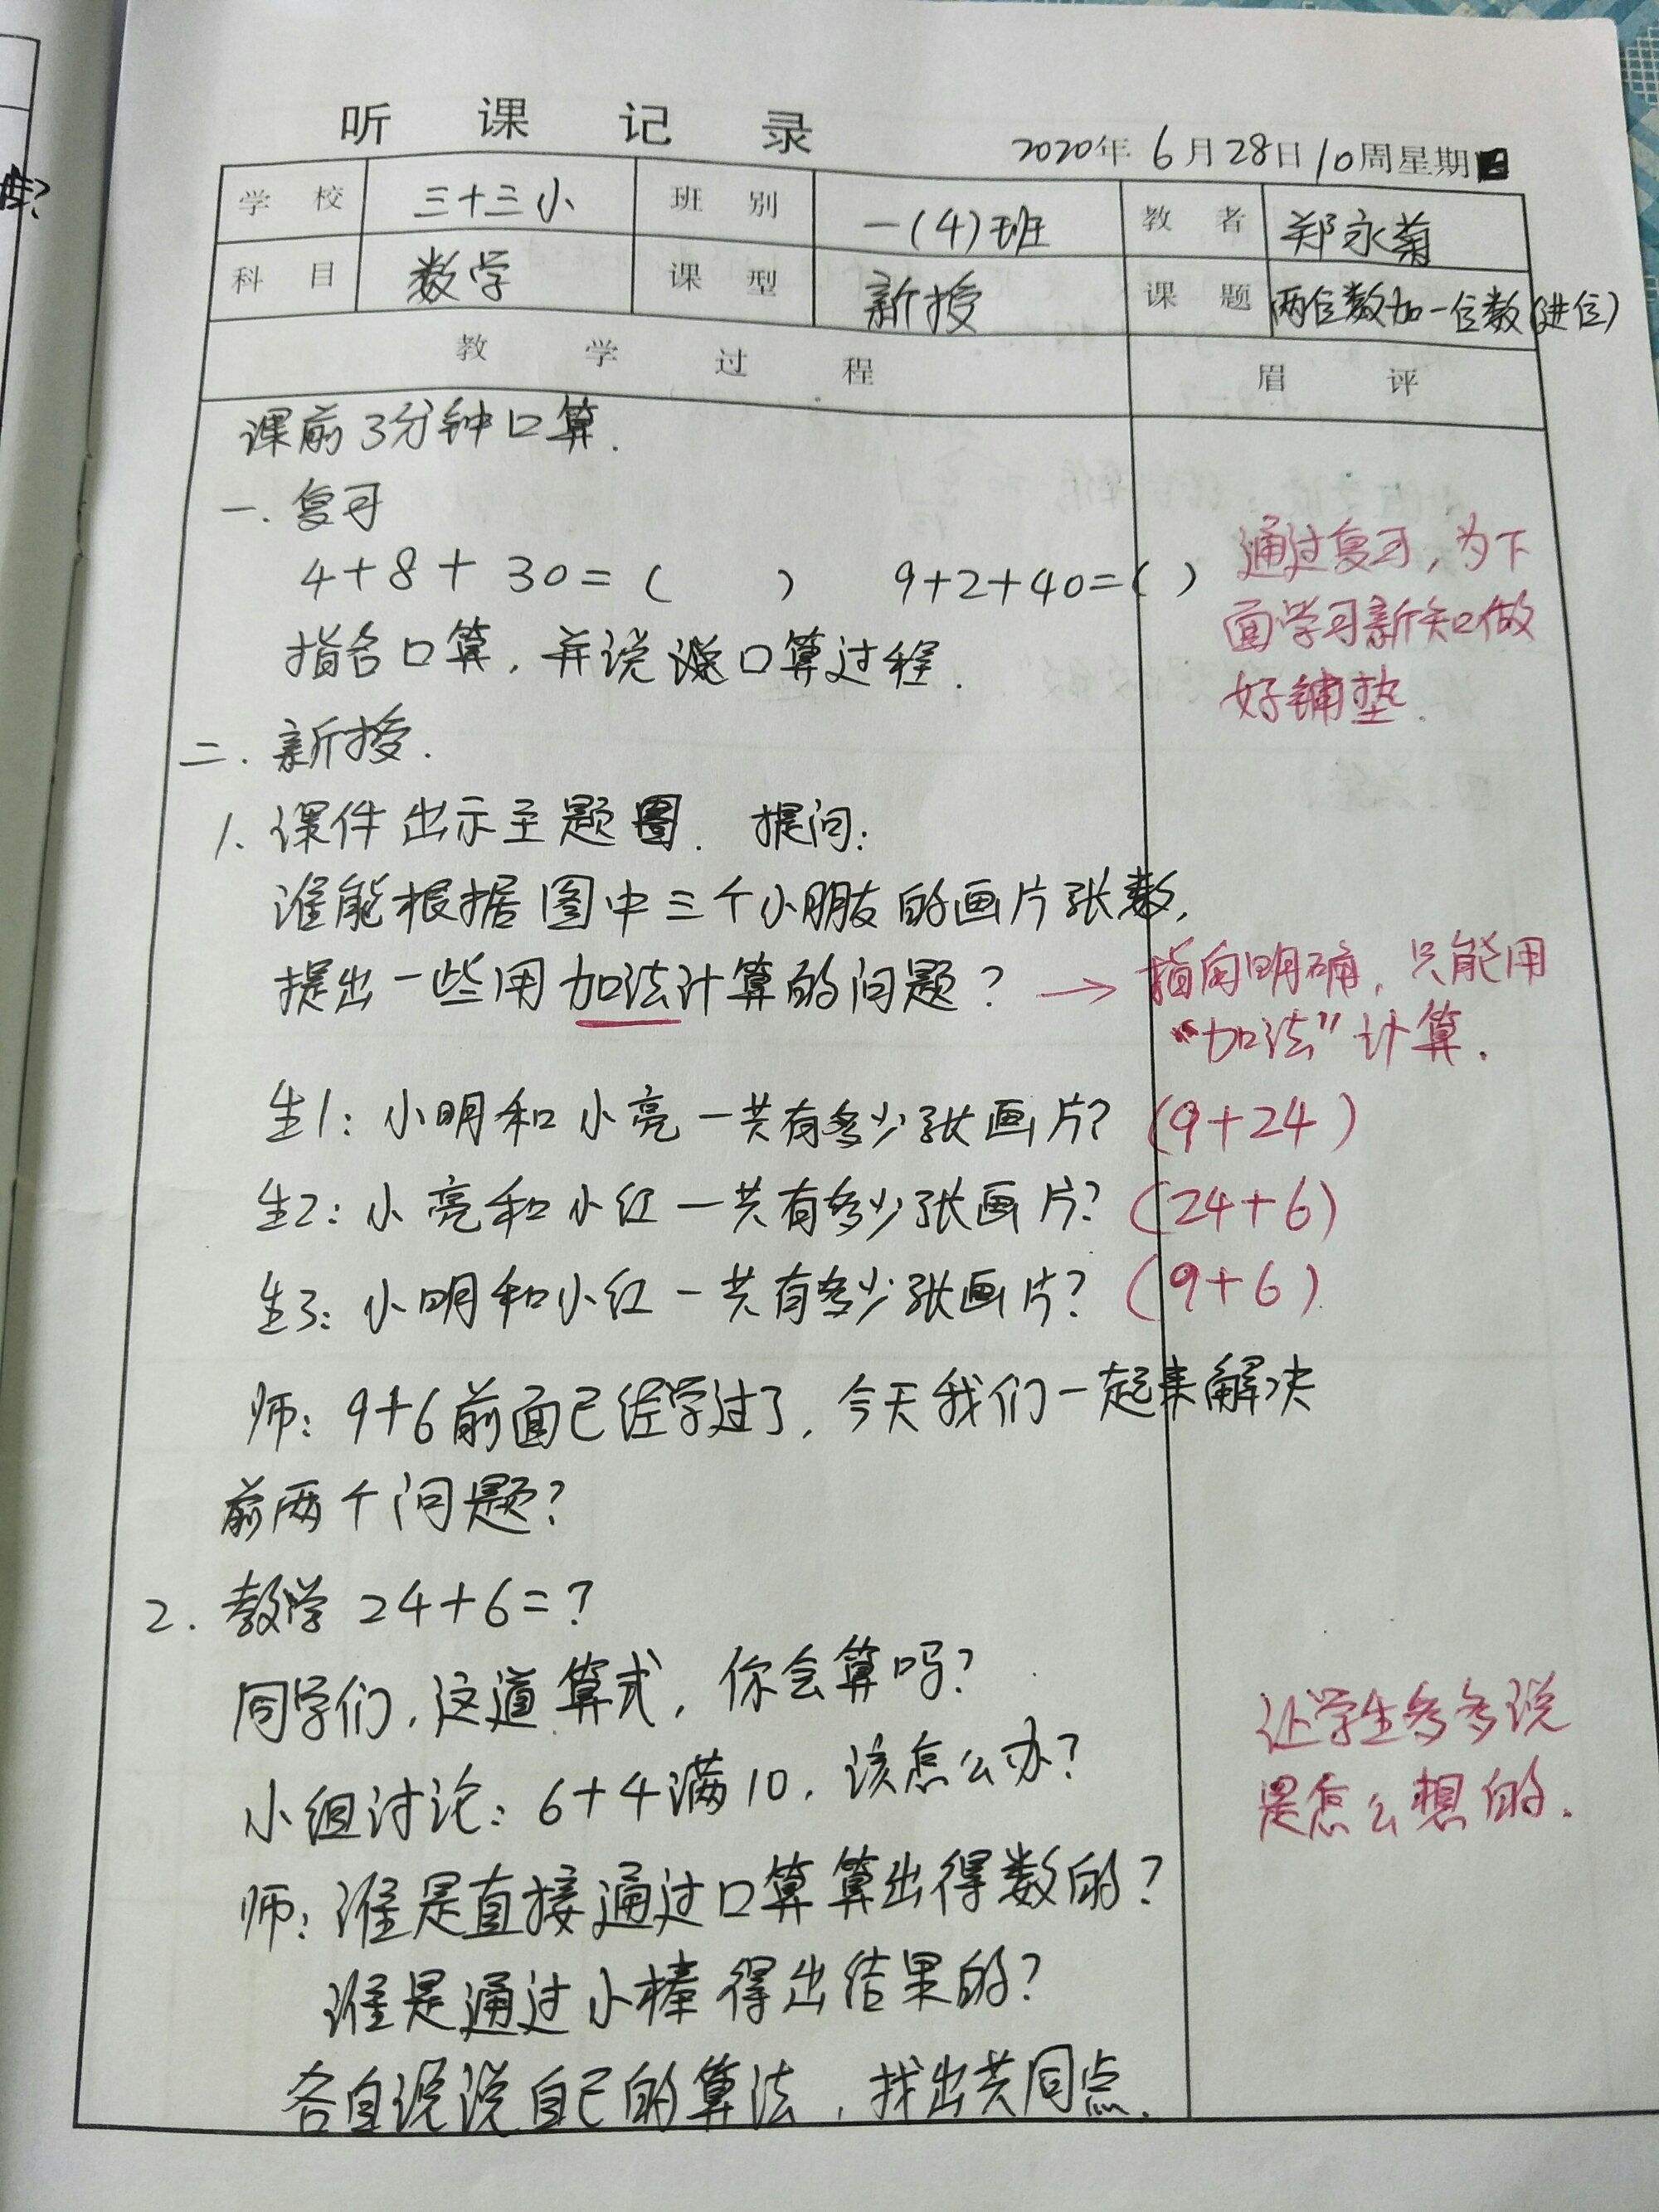 听课记录
2020年6月28日10周星期日
学校 三十三小 班别 一(4)班 教者 郑永菊
科目 数学 课型 新授 课题 两位数加一位数(进位)
教学过程 眉评
课前3分钟口算.
一.复习
4+8+30=( ) 9+2+40=( )
指名口算,并说说口算过程.
通过复习,为下
面学习新知做
好铺垫.
二.新授.
1.课件出示主题图.提问:
谁能根据图中三个小朋友的画片张数,
提出一些用加法计算的问题? →
指向明确,只能用
“加法”计算.
生1:小明和小亮一共有多少张画片? (9+24)
生2:小亮和小红一共有多少张画片? (24+6)
生3:小明和小红一共有多少张画片? (9+6)
师:9+6前面已经学过了,今天我们一起来解决
前两个问题?
2.教学 24+6=?
同学们,这道算式,你会算吗?
小组讨论:6+4满10,该怎么办?
让学生多多说
是怎么想的.
师:谁是直接通过口算算出得数的?
谁是通过小棒得出结果的?
各自说说自己的算法,找出共同点.